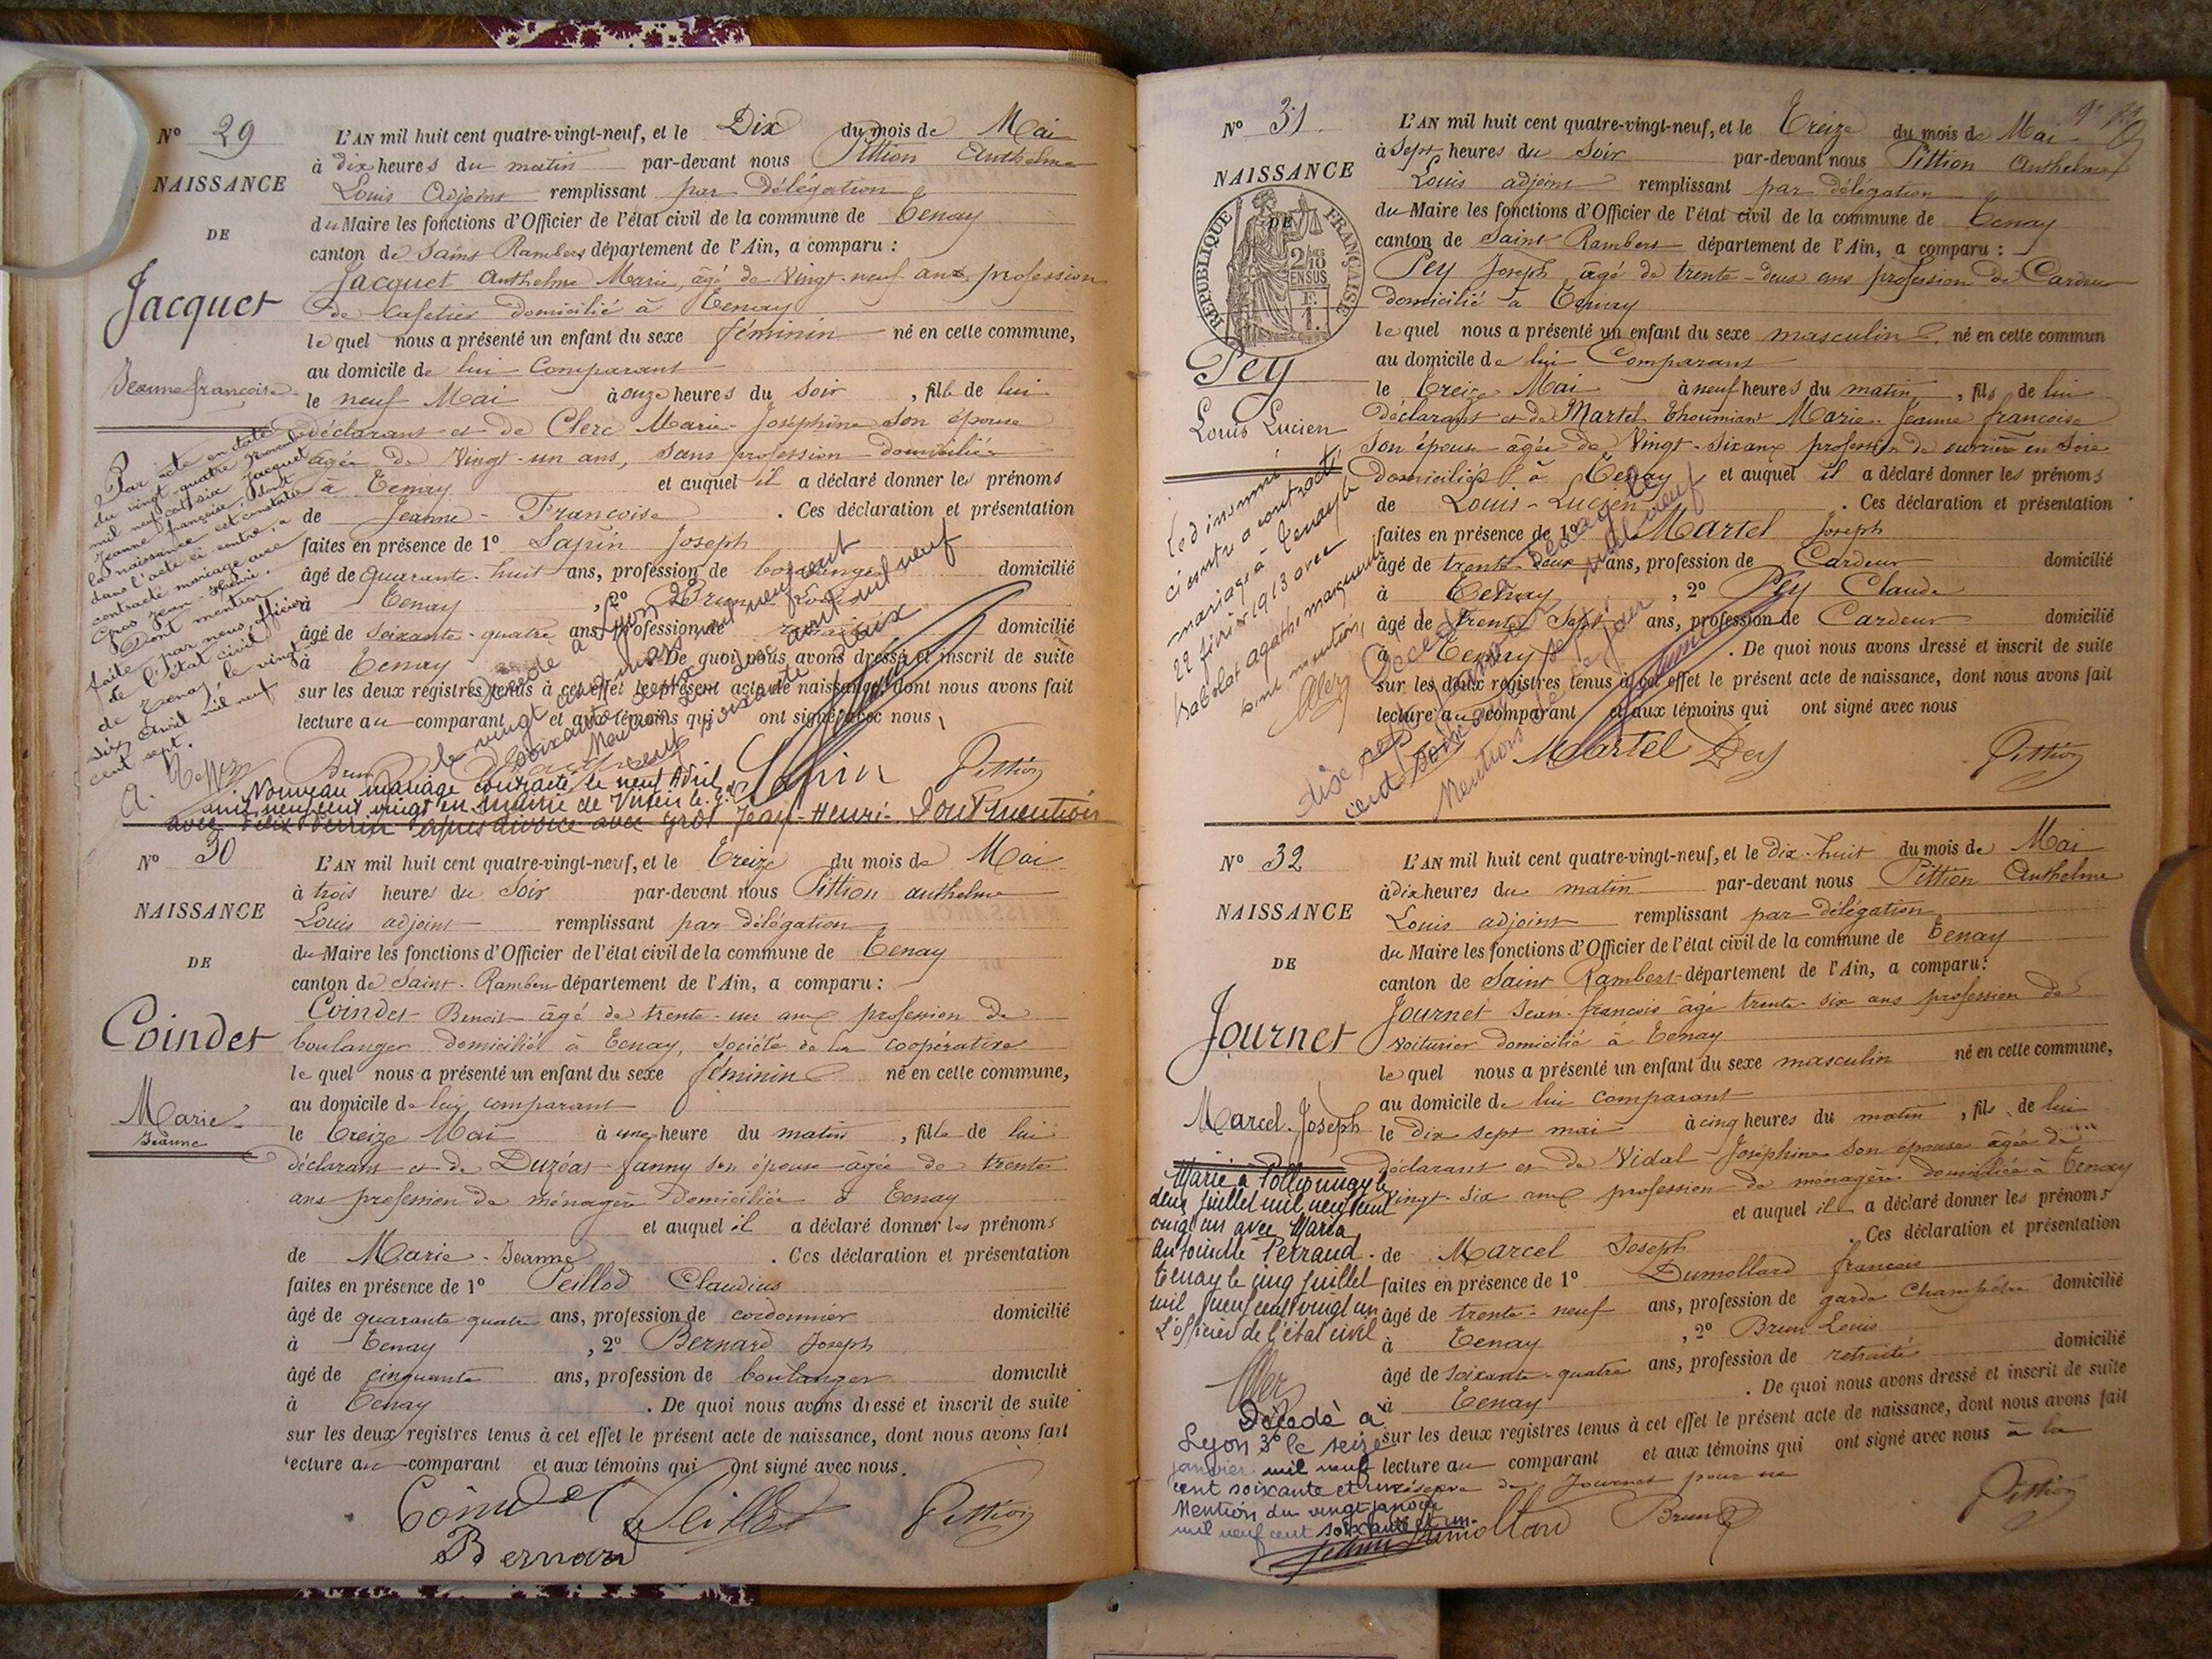 N° 29
NAISSANCE
DE
Jacquet
Jeanne françoise
L'AN mil huit cent quatre-vingt-neuf, et le Dix du mois de Mai
à dix heures du matin par-devant nous Pittion Anthelme
Louis Adjoint remplissant par délégation
du Maire les fonctions d'Officier de l'état civil de la commune de Tenay
canton de Saint Rambert département de l'Ain, a comparu :
Jacquet Anthelme Marie, âgé de Vingt-neuf ans, profession
de Cafetier domicilié à Tenay
lequel nous a présenté un enfant du sexe féminin né en cette commune,
au domicile de lui Comparant
le neuf Mai à onze heures du soir, fille de lui
déclarant et de Clerc Marie-Joséphine son épouse
âgée de Vingt-un ans, sans profession domiciliée
à Tenay et auquel il a déclaré donner les prénoms
de Jeanne-Françoise. Ces déclaration et présentation
faites en présence de 1° Sapin Joseph
âgé de quarante-huit ans, profession de boulanger domicilié
à Tenay, 2° Brun Louis
âgé de soixante-quatre ans, profession de domicilié
à Tenay. De quoi nous avons dressé et inscrit de suite
sur les deux registres tenus à cet effet le présent acte de naissance, dont nous avons fait
lecture au comparant et aux témoins qui ont signé avec nous,
Par acte en date
du vingt quatre
mil neuf cent six Jacquet
Jeanne françoise dont
la naissance est constatée
dans l'acte ci-contre, a
contracté mariage avec
Gros Jean-Henri.
Dont mention
faite par nous, officier
de l'état civil
de Tenay, le vingt
six Avril mil neuf
cent sept.
Décédé à Lyon 2e
le vingt cinq mars mil neuf cent
soixante neuf
Mention du deux avril mil neuf
cent soixante
Brun Sapin Pittion
Nouveau mariage contracté le neuf Avril
mil neuf cent vingt en mairie de
avec Félix Perrin après divorce avec Gros Jean-Henri. Dont mention
N° 30
NAISSANCE
DE
Coindet
Marie
Jeanne
L'AN mil huit cent quatre-vingt-neuf, et le Treize du mois de Mai
à trois heures du soir par-devant nous Pittion anthelme
Louis adjoint remplissant par délégation
du Maire les fonctions d'Officier de l'état civil de la commune de Tenay
canton de Saint-Rambert département de l'Ain, a comparu :
Coindet Benoit âgé de trente-un ans profession de
boulanger domicilié à Tenay, société de la coopérative
lequel nous a présenté un enfant du sexe féminin né en cette commune,
au domicile de lui comparant
le treize Mai à une heure du matin, fille de lui
déclarant et de Duzéas fanny son épouse âgée de trente
ans profession de ménagère domiciliée à Tenay
et auquel il a déclaré donner les prénoms
de Marie-Jeanne. Ces déclaration et présentation
faites en présence de 1° Peillod Claudius
âgé de quarante quatre ans, profession de cordonnier domicilié
à Tenay, 2° Bernard Joseph
âgé de cinquante ans, profession de boulanger domicilié
à Tenay. De quoi nous avons dressé et inscrit de suite
sur les deux registres tenus à cet effet le présent acte de naissance, dont nous avons fait
lecture au comparant et aux témoins qui ont signé avec nous.
Coindet Peillod Pittion
Bernard
N° 31
NAISSANCE
DE
RÉPUBLIQUE FRANÇAISE
2/10 EN SUS
Pey
Louis Lucien
L'AN mil huit cent quatre-vingt-neuf, et le Treize du mois de Mai
à Sept heures du soir par-devant nous Pittion Anthelme
Louis adjoint remplissant par délégation
du Maire les fonctions d'Officier de l'état civil de la commune de Tenay
canton de Saint Rambert département de l'Ain, a comparu :
Pey Joseph, âgé de trente-deux ans profession de Cardeur
domicilié à Tenay
lequel nous a présenté un enfant du sexe masculin né en cette commun
au domicile de lui Comparant
le treize Mai à neuf heures du matin, fils de lui
déclarant et de Martel-Thoumian Marie-Jeanne françoise
son épouse âgée de Vingt-six ans profession de ouvrière en Soie
domiciliés à Tenay et auquel il a déclaré donner les prénoms
de Louis-Lucien. Ces déclaration et présentation
faites en présence de 1° Martel Joseph
âgé de trente-deux ans, profession de Cardeur domicilié
à Tenay, 2° Pey Claude
âgé de Trente Sept ans, profession de Cardeur domicilié
à Tenay. De quoi nous avons dressé et inscrit de suite
sur les deux registres tenus à cet effet le présent acte de naissance, dont nous avons fait
lecture au comparant et aux témoins qui ont signé avec nous
Le dénommé
ci contre a contracté
mariage à Tenay le
22 février 1913 avec
agathe marguerite
dont mention,
Martel Pey Pittion
N° 32
NAISSANCE
DE
Journet
Marcel-Joseph
L'AN mil huit cent quatre-vingt-neuf, et le dix-huit du mois de Mai
à dix heures du matin par-devant nous Pittion Anthelme
Louis adjoint remplissant par délégation
du Maire les fonctions d'Officier de l'état civil de la commune de Tenay
canton de Saint Rambert département de l'Ain, a comparu :
Journet Jean-françois âgé trente-six ans profession de
voiturier domicilié à Tenay
lequel nous a présenté un enfant du sexe masculin né en cette commune,
au domicile de lui comparant
le dix sept mai à cinq heures du matin, fils de lui
déclarant et de Vidal Joséphine son épouse âgée de
vingt-six ans profession de ménagère domiciliée à Tenay
et auquel il a déclaré donner les prénoms
de Marcel Joseph. Ces déclaration et présentation
faites en présence de 1° Dumollard françois
âgé de trente-neuf ans, profession de garde Champêtre domicilié
à Tenay, 2° Brun Louis
âgé de soixante-quatre ans, profession de retraité domicilié
à Tenay. De quoi nous avons dressé et inscrit de suite
sur les deux registres tenus à cet effet le présent acte de naissance, dont nous avons fait
lecture au comparant et aux témoins qui ont signé avec nous à la
réserve de Journet pour ne
Marié à Pollionnay le
deux juillet mil neuf cent
vingt un avec Maria
Antoinette Perraud.
Tenay le cinq juillet
mil neuf cent vingt un
L'officier de l'état civil
Décédé à
Lyon 3e le seize
janvier mil neuf
cent soixante et un
Mention du vingt janvier
mil neuf cent soixante et un.
Dumollard Brun Pittion